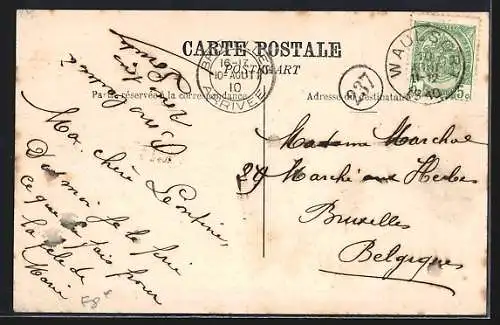 CARTE POSTALE
POSTKAART
Partie réservée à la correspondance
Adresse du destinataire
WAULSORT
10
5c
BRUXELLES
16-17
10-AOUT
10
ARRIVÉE
237
Ma chère Léontine,
Dis moi je te prie
ce que tu fais pour
la fête de
Marie
Madame Marchal
29 Marché aux Herbes
Bruxelles
Belgique
F8